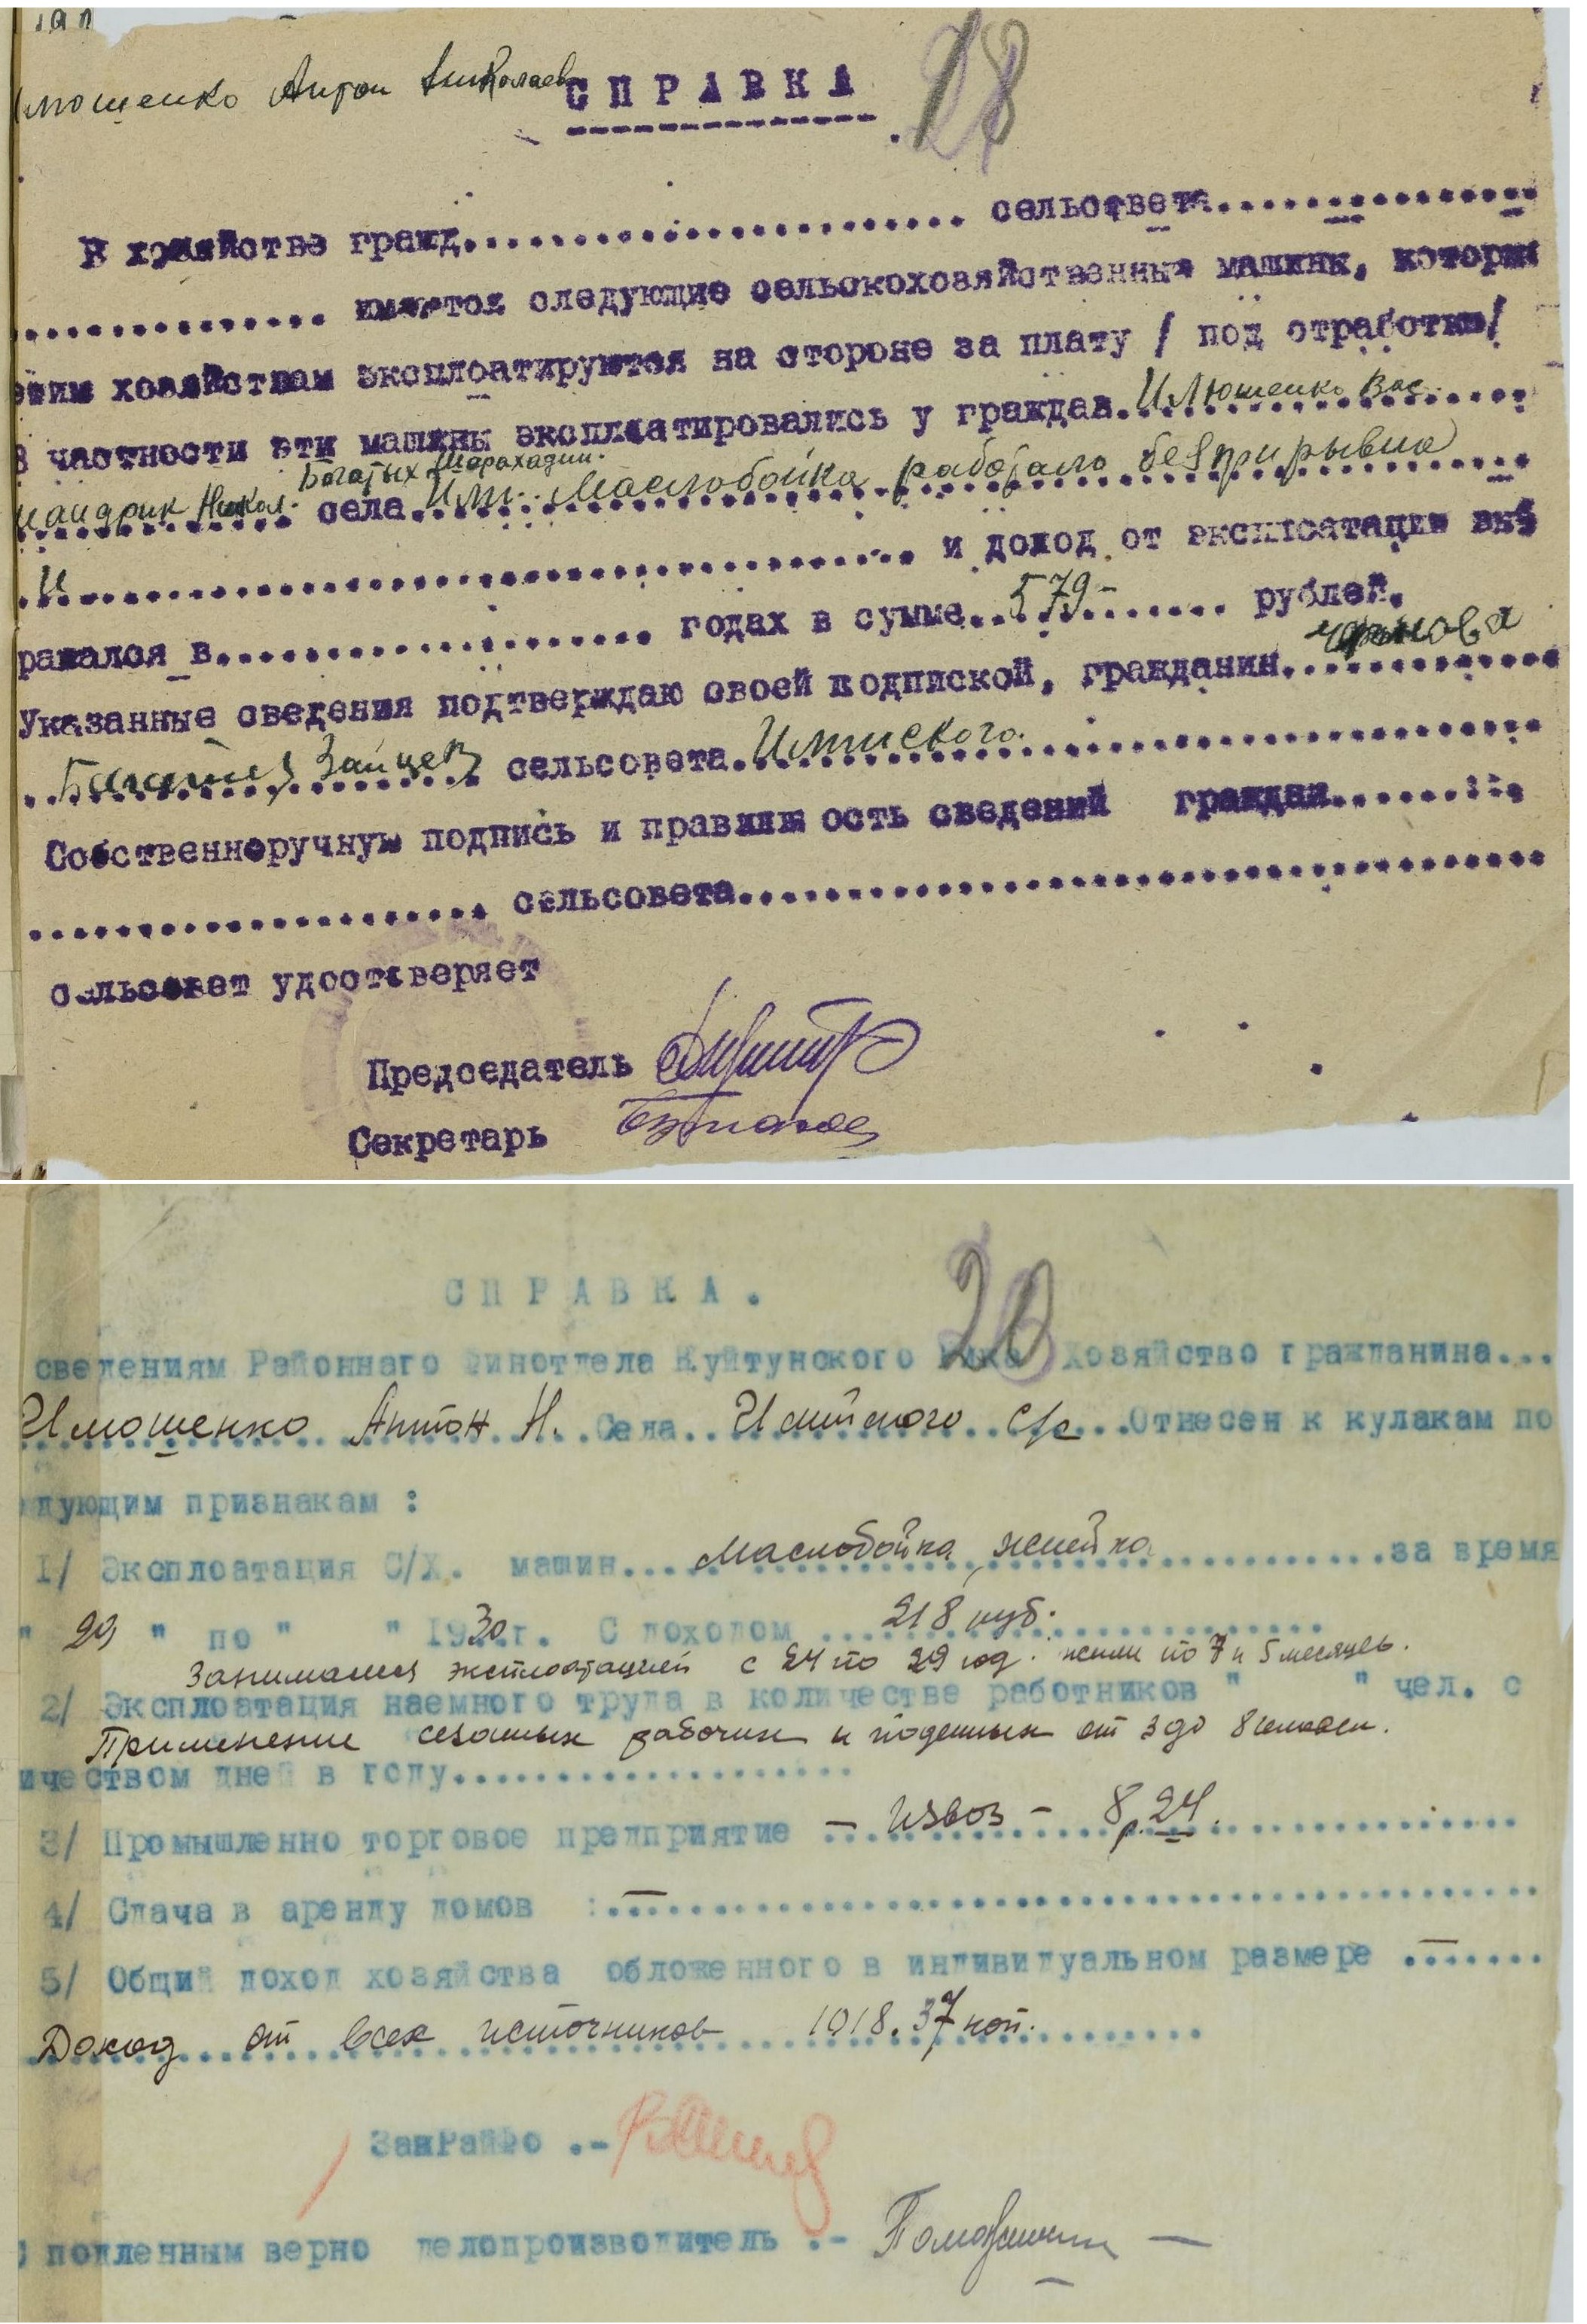 мошенко Антон Николаев
СПРАВКА
28
В хозяйстве гражд........................ сельсовета................
............... имеются следующие сельскохозяйственные машины, которые
этим хозяйствам эксплоатируются на стороне за плату / под отработки/
В частности эти машины эксплоатировались у граждан. Илюшенко Вас.
Богатых Шарахадин.
Никол. села Или. Маслобойка работало безприрывна
И................................ и доход от эксплоатации вы
ражался в.................... годах в сумме 579- рублей.
Указанные сведения подтверждаю своей подпиской, гражданин. Чернова
Зайцев сельсовета. Илийского.
Собственноручную подпись и правильность сведений граждан..........
................ сельсовета............................
сельсовет удостоверяет
Председатель
Секретарь
СПРАВКА.
20
сведениям Районнаго Финотдела Куйтунского Рика Хозяйство гражданина...
Имошенко Антон Н. Села.. Илийского с/с...Отнесен к кулакам по
дующим признакам :
1/ Эксплоатация С/Х. машин.... Маслобойка, жнейка ............за время
" 29 " по " " 1930 г. С доходом .... 218 руб.
Занимался эксплоатацией с 24 по 29 год. жили по 7 и 5 месяцев.
2/ Эксплоатация наемного труда в количестве работников " " чел. с
Применение сезонных рабочих и поденных от 3 до 8 человек.
ичеством дней в году....................
3/ Промышленно торговое предприятие – извоз – 8 р. 24.
4/ Сдача в аренду домов :–................................
5/ Общий доход хозяйства обложенного в индивидуальном размере .–......
Доход от всех источников 1018.37 коп.
ЗавРайФо .-
С подленным верно делопроизводитель :-